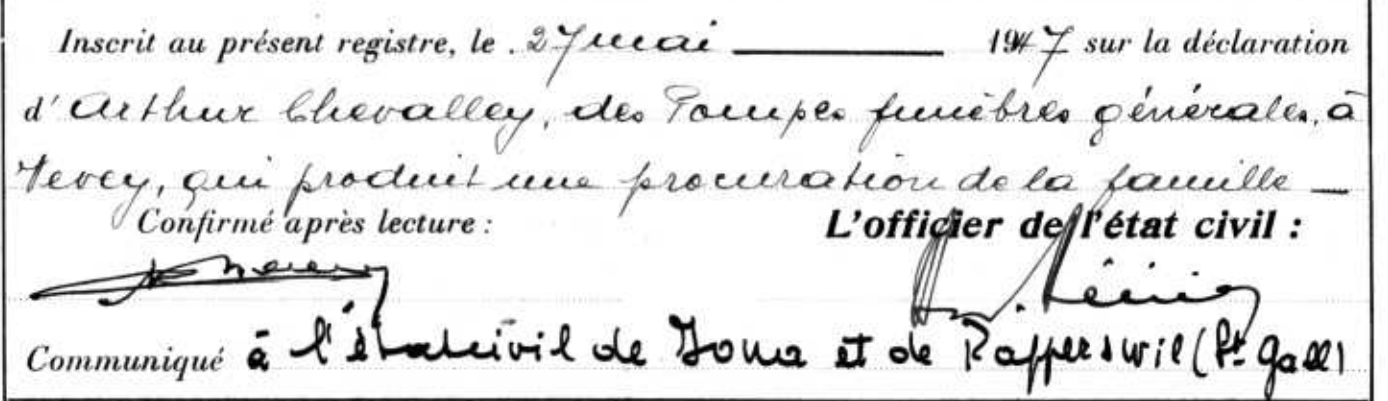 Inscrit au présent registre, le 27 mai 1947 sur la déclaration
d'Arthur Chevalley, des Pompes funèbres générales, à
Vevey, qui produit une procuration de la famille —
Confirmé après lecture : L'officier de l'état civil :
Communiqué à l'étatcivil de Jona et de Rapperswil (St. Gall)